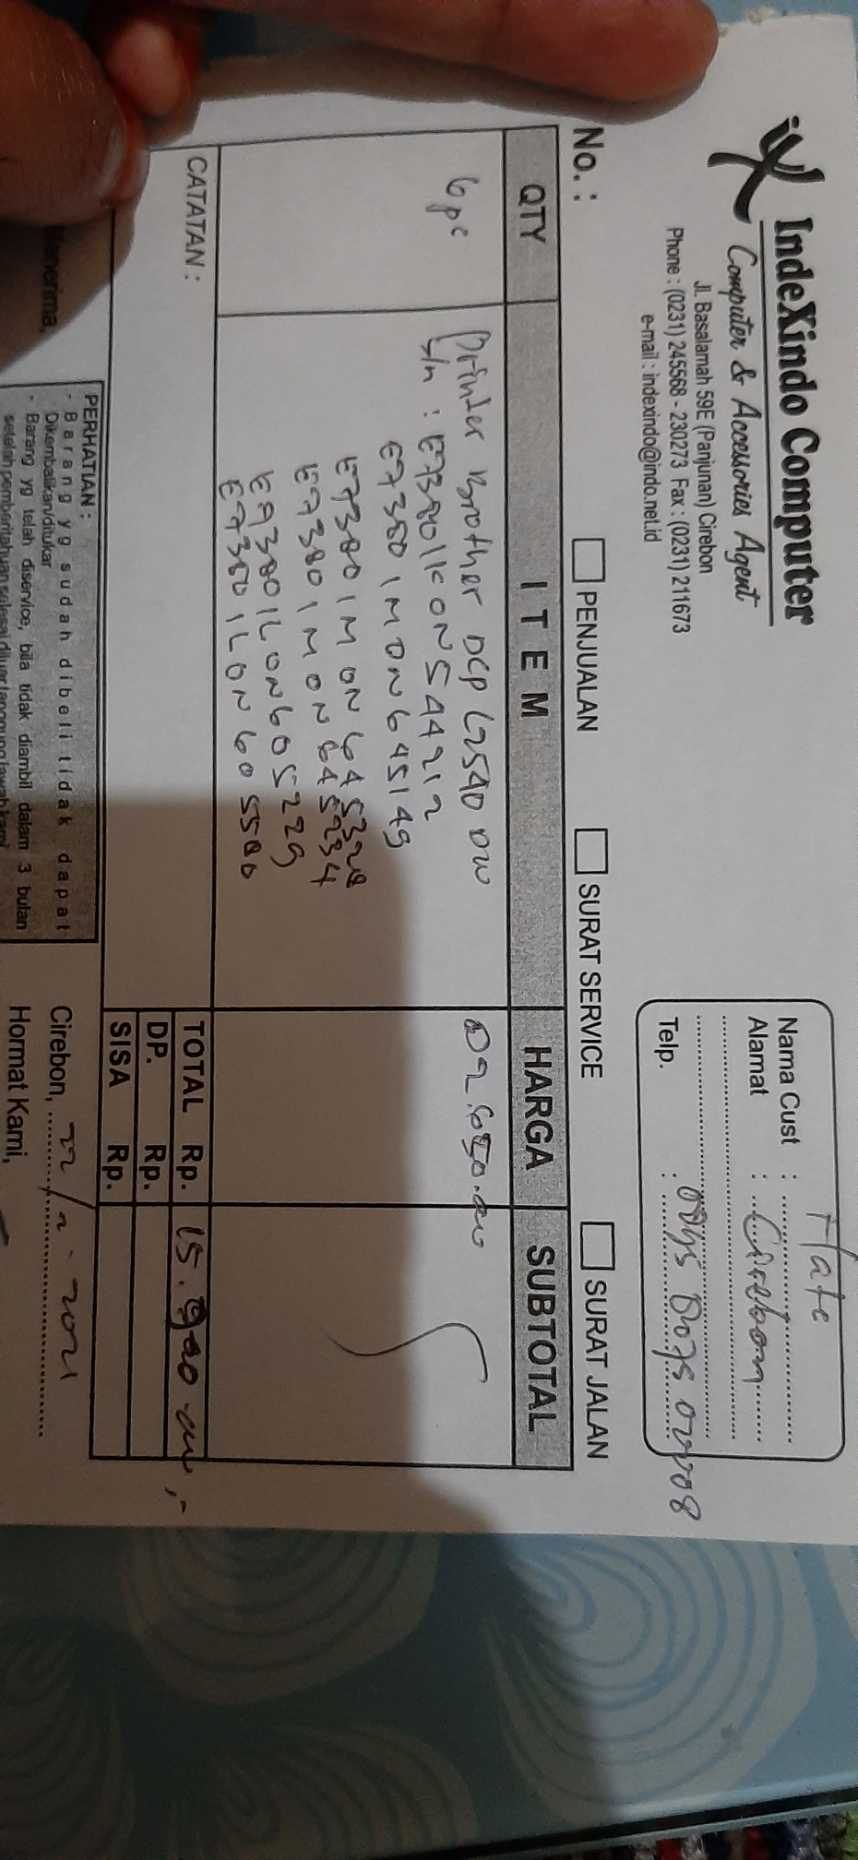 IndeXindo Computer
Computer & Accessories Agent
Jl. Basalamah 59E (Panjunan) Cirebon
Phone : (0231) 245568 - 230273 Fax : (0231) 211673
e-mail : indexindo@indo.net.id
Nama Cust :
Alamat : Cirebon
Telp. :
No. :
PENJUALAN SURAT SERVICE SURAT JALAN
QTY ITEM HARGA SUBTOTAL
6 pc Printer Brother DCP L2540 DW
s/n : E73801K0N544212
E73801M0N645149
E73801M0N645328
E73801M0N645234
E73801L0N605229
E73801L0N605500
CATATAN :
TOTAL Rp. 15.900
DP. Rp.
SISA Rp.
PERHATIAN :
- Barang yg sudah dibeli tidak dapat
Dikembalikan/ditukar
- Barang yg telah diservice, bila tidak diambil dalam 3 bulan
setelah pemberitahuan selesai diluar tanggung jawab kami
Cirebon, 22/2 - 2021
Hormat Kami,